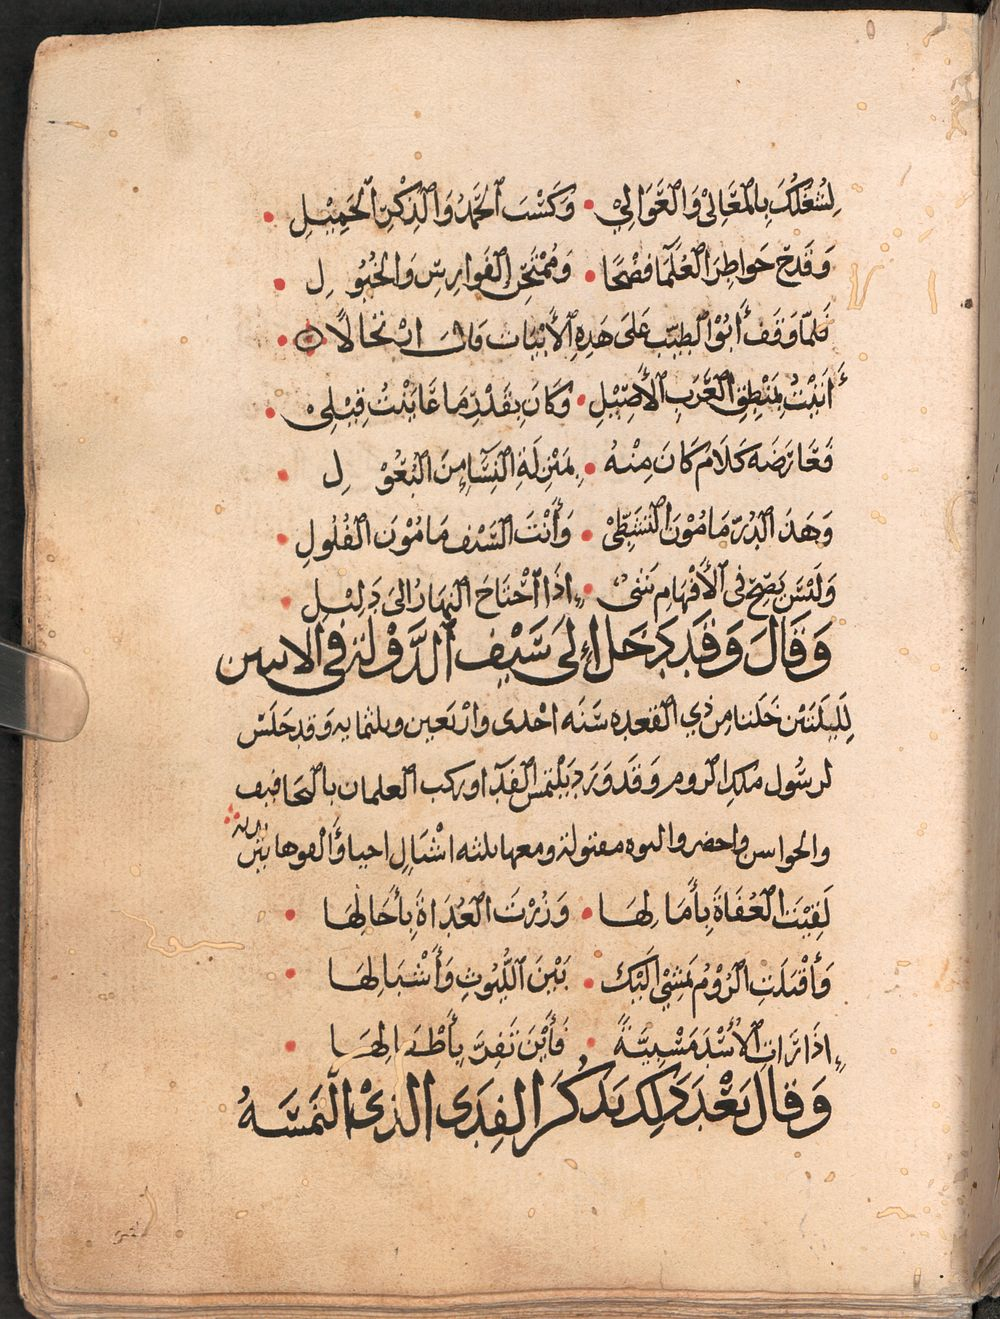 لِشُغْلُكَ بِالْمَعَالِي وَالْعَوَالِي • وَكَسْبَ الْحَمْدِ وَالذِّكْرِ الْجَمِيْلِ •
وَقَدْحَ خَوَاطِرِ الْعُلَمَا فَصْحًا • وَمُمْتَحِنَ الْفَوَارِسِ وَالْخُيُولِ •
فَلَمَّا وَقَفَ أَبُوْ الطَّيِّبِ عَلَى هَذِهِ الْأَبْيَاتِ قَالَ ارْتِجَالًا •
أَتَيْتُ بِمَنْطِقِ الْعَرَبِ الْأَصِيْلِ • وَكَانَ بِقَدْرِ مَا عَايَنْتُ قِيْلِي •
فَعَارَضَهُ كَلَامٌ كَانَ مِنْهُ • بِمَنْزِلَةِ النِّسَآءِ مِنَ الْبُعُوْلِ •
وَهَذَ الدُّرُّ مَامُوْنُ التَّشَظِّيْ • وَأَنْتَ السَّيْفُ مَامُوْنُ الْفُلُولِ •
وَلَيْسَ يَصِحُّ فِي الْأَفْهَامِ شَيْءٌ • اِذَا احْتَاجَ النَّهَارُ اِلَى دَلِيْلِ •
وَقَالَ وَقَدْ دَخَلَ اِلَى سَيْفِ الدَّوْلَةِ فِي الاثنين
لِلَيْلَتَيْنِ خَلَتَا مِن ذِي الْقَعْدَه سَنَه احْدَى وارْبَعين وثلثمايه وَقَد جَلَسَ
لرسُول ملك الروم وَقَدْ وَرَدَ يَلْتَمِسُ الْفِدَآ وركب الغلمان بالتجافيف
والجواسن واحضروا لبوه مقتولة ومعها ثلثه اشْبَالٍ احيا وَالقوها بَيْنَ يديه
لَقِيْتَ الْعُفَاةَ بِأَمَالِهَا • وَزُرْتَ الْعُدَاةَ بِأَجَالِهَا •
وَأَقْبَلَتِ الرُّوْمُ تَمْشِيْ اِلَيْكَ • بَيْنَ اللُّيُوْثِ وَأَشْبَالِهَا •
اِذَا رَأَتِ الْأُسْدَ مَسْبِيَّةً • فَأَيْنَ تَفِرُّ بِأَطْفَالِهَا •
وَقَالَ بَعْدَ ذَلِكَ يَذْكُرُ الْفِدَى الَّذِيْ الْتَمَسَهُ